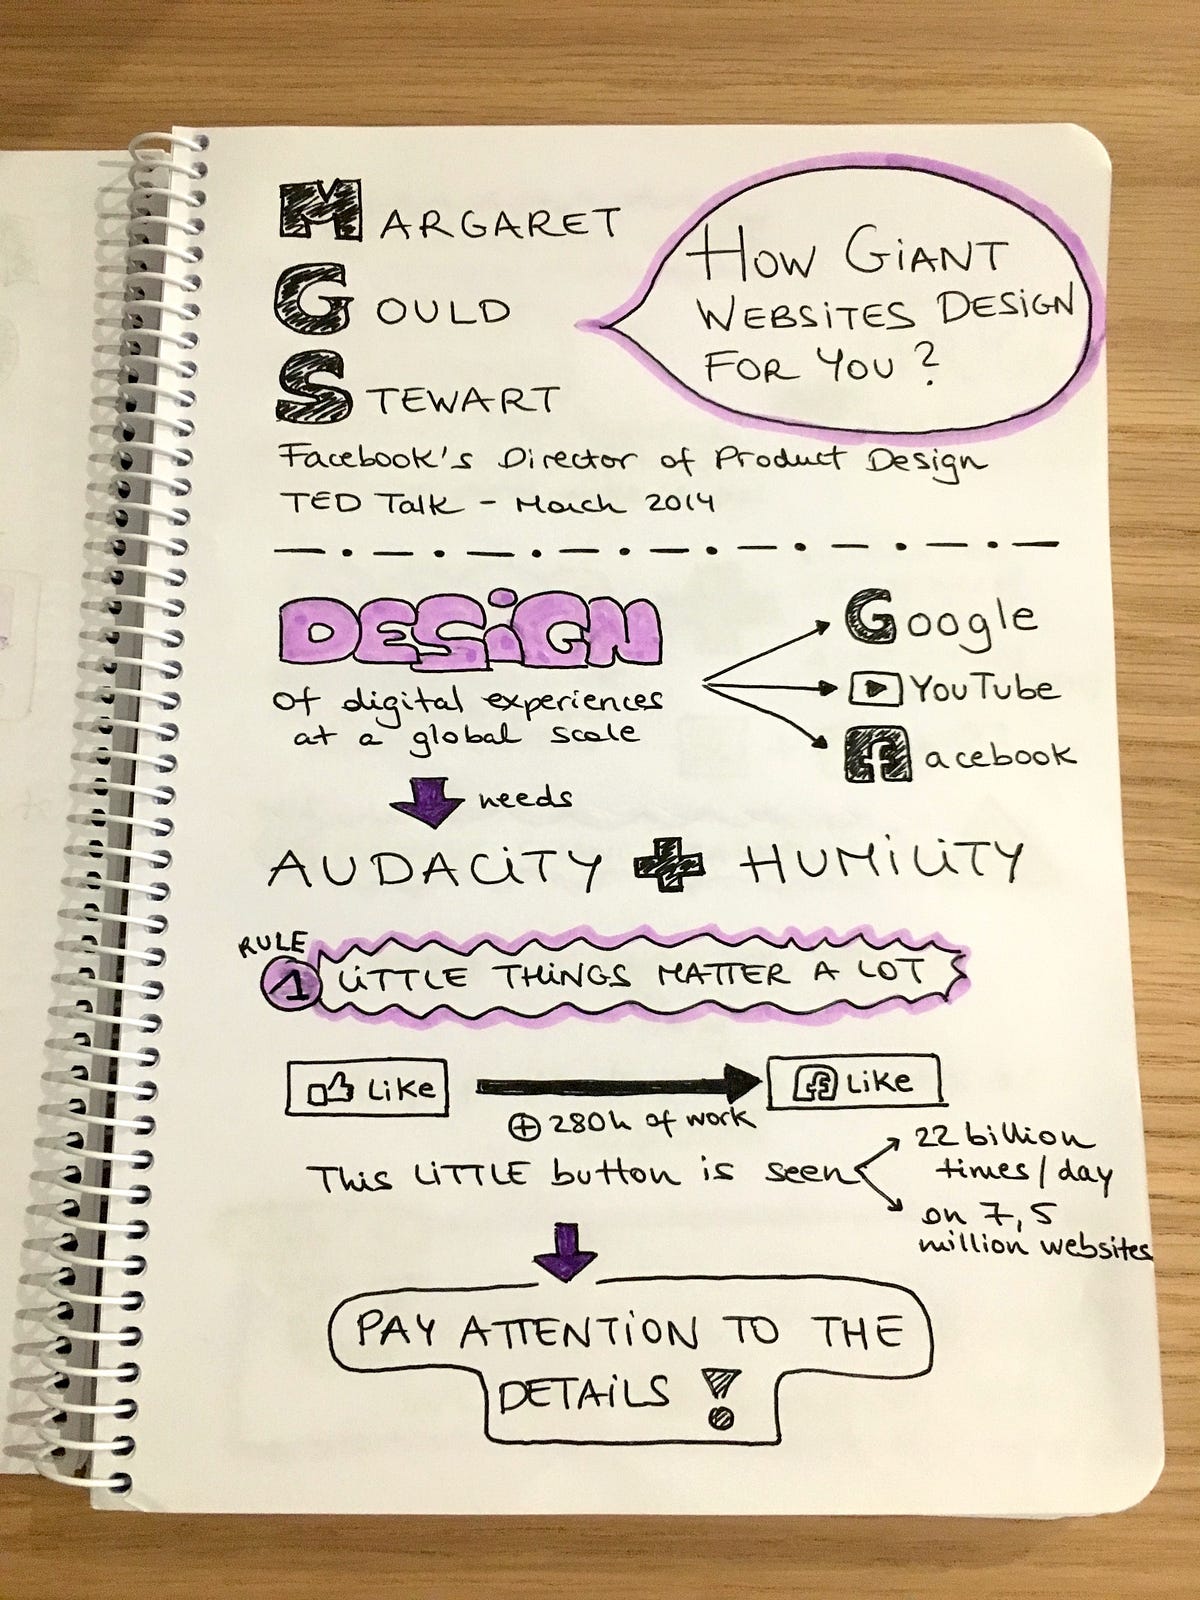 MARGARET
GOULD
STEWART
HOW GIANT
WEBSITES DESIGN
FOR YOU ?
Facebook's Director of Product Design
TED Talk - March 2014
DESIGN
of digital experiences
at a global scale
Google
YouTube
facebook
needs
AUDACITY + HUMILITY
RULE
1 LITTLE THINGS MATTER A LOT
Like
f Like
+ 280h of work
This LITTLE button is seen
22 billion
times/day
on 7,5
million websites
PAY ATTENTION TO THE
DETAILS !